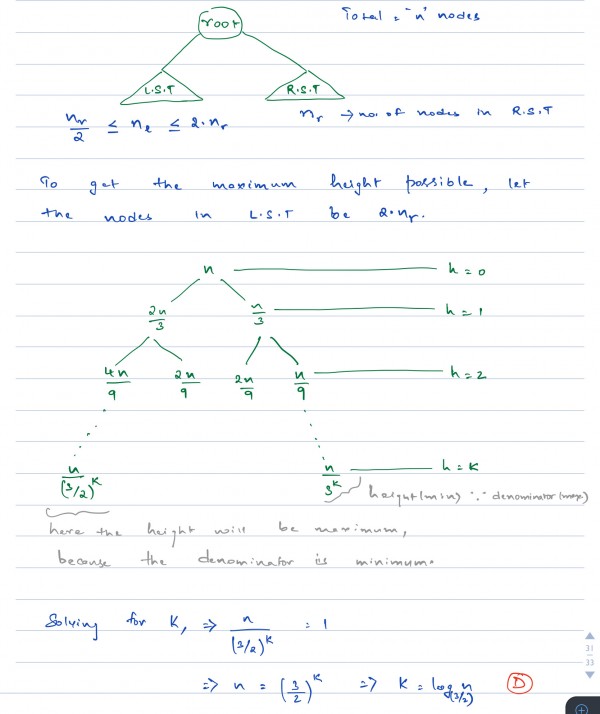 root
Total = "n" nodes
L.S.T
R.S.T
nᵣ/2 ≤ nₗ ≤ 2·nᵣ
nᵣ → no. of nodes in R.S.T
To get the maximum height possible, let
the nodes in L.S.T be 2·nᵣ.
n h = 0
2n/3 n/3 h = 1
4n/9 2n/9 2n/9 n/9 h = 2
n/(3/2)^K n/3^K h = K
height(min) ∵ denominator(max)
here the height will be maximum,
because the denominator is minimum.
Solving for K, ⇒ n/(3/2)^K = 1
⇒ n = (3/2)^K ⇒ K = log₍₃/₂₎n D
31
33